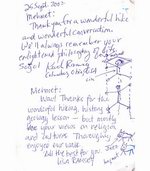 26 Sept. 2007
Mehmet:
Thank you for a wonderful hike
and wonderful conversation.
We'll always remember your
enlightened philosophy of life.
Karl Ramsey
Columbus, Ohio
Mehmet:
Wow! Thanks for the
wonderful hiking, history &
geology lesson — but mostly
for your views on religion
and nations. Thoroughly
enjoyed our walk.
All the best for you.
Lisa Ramsey